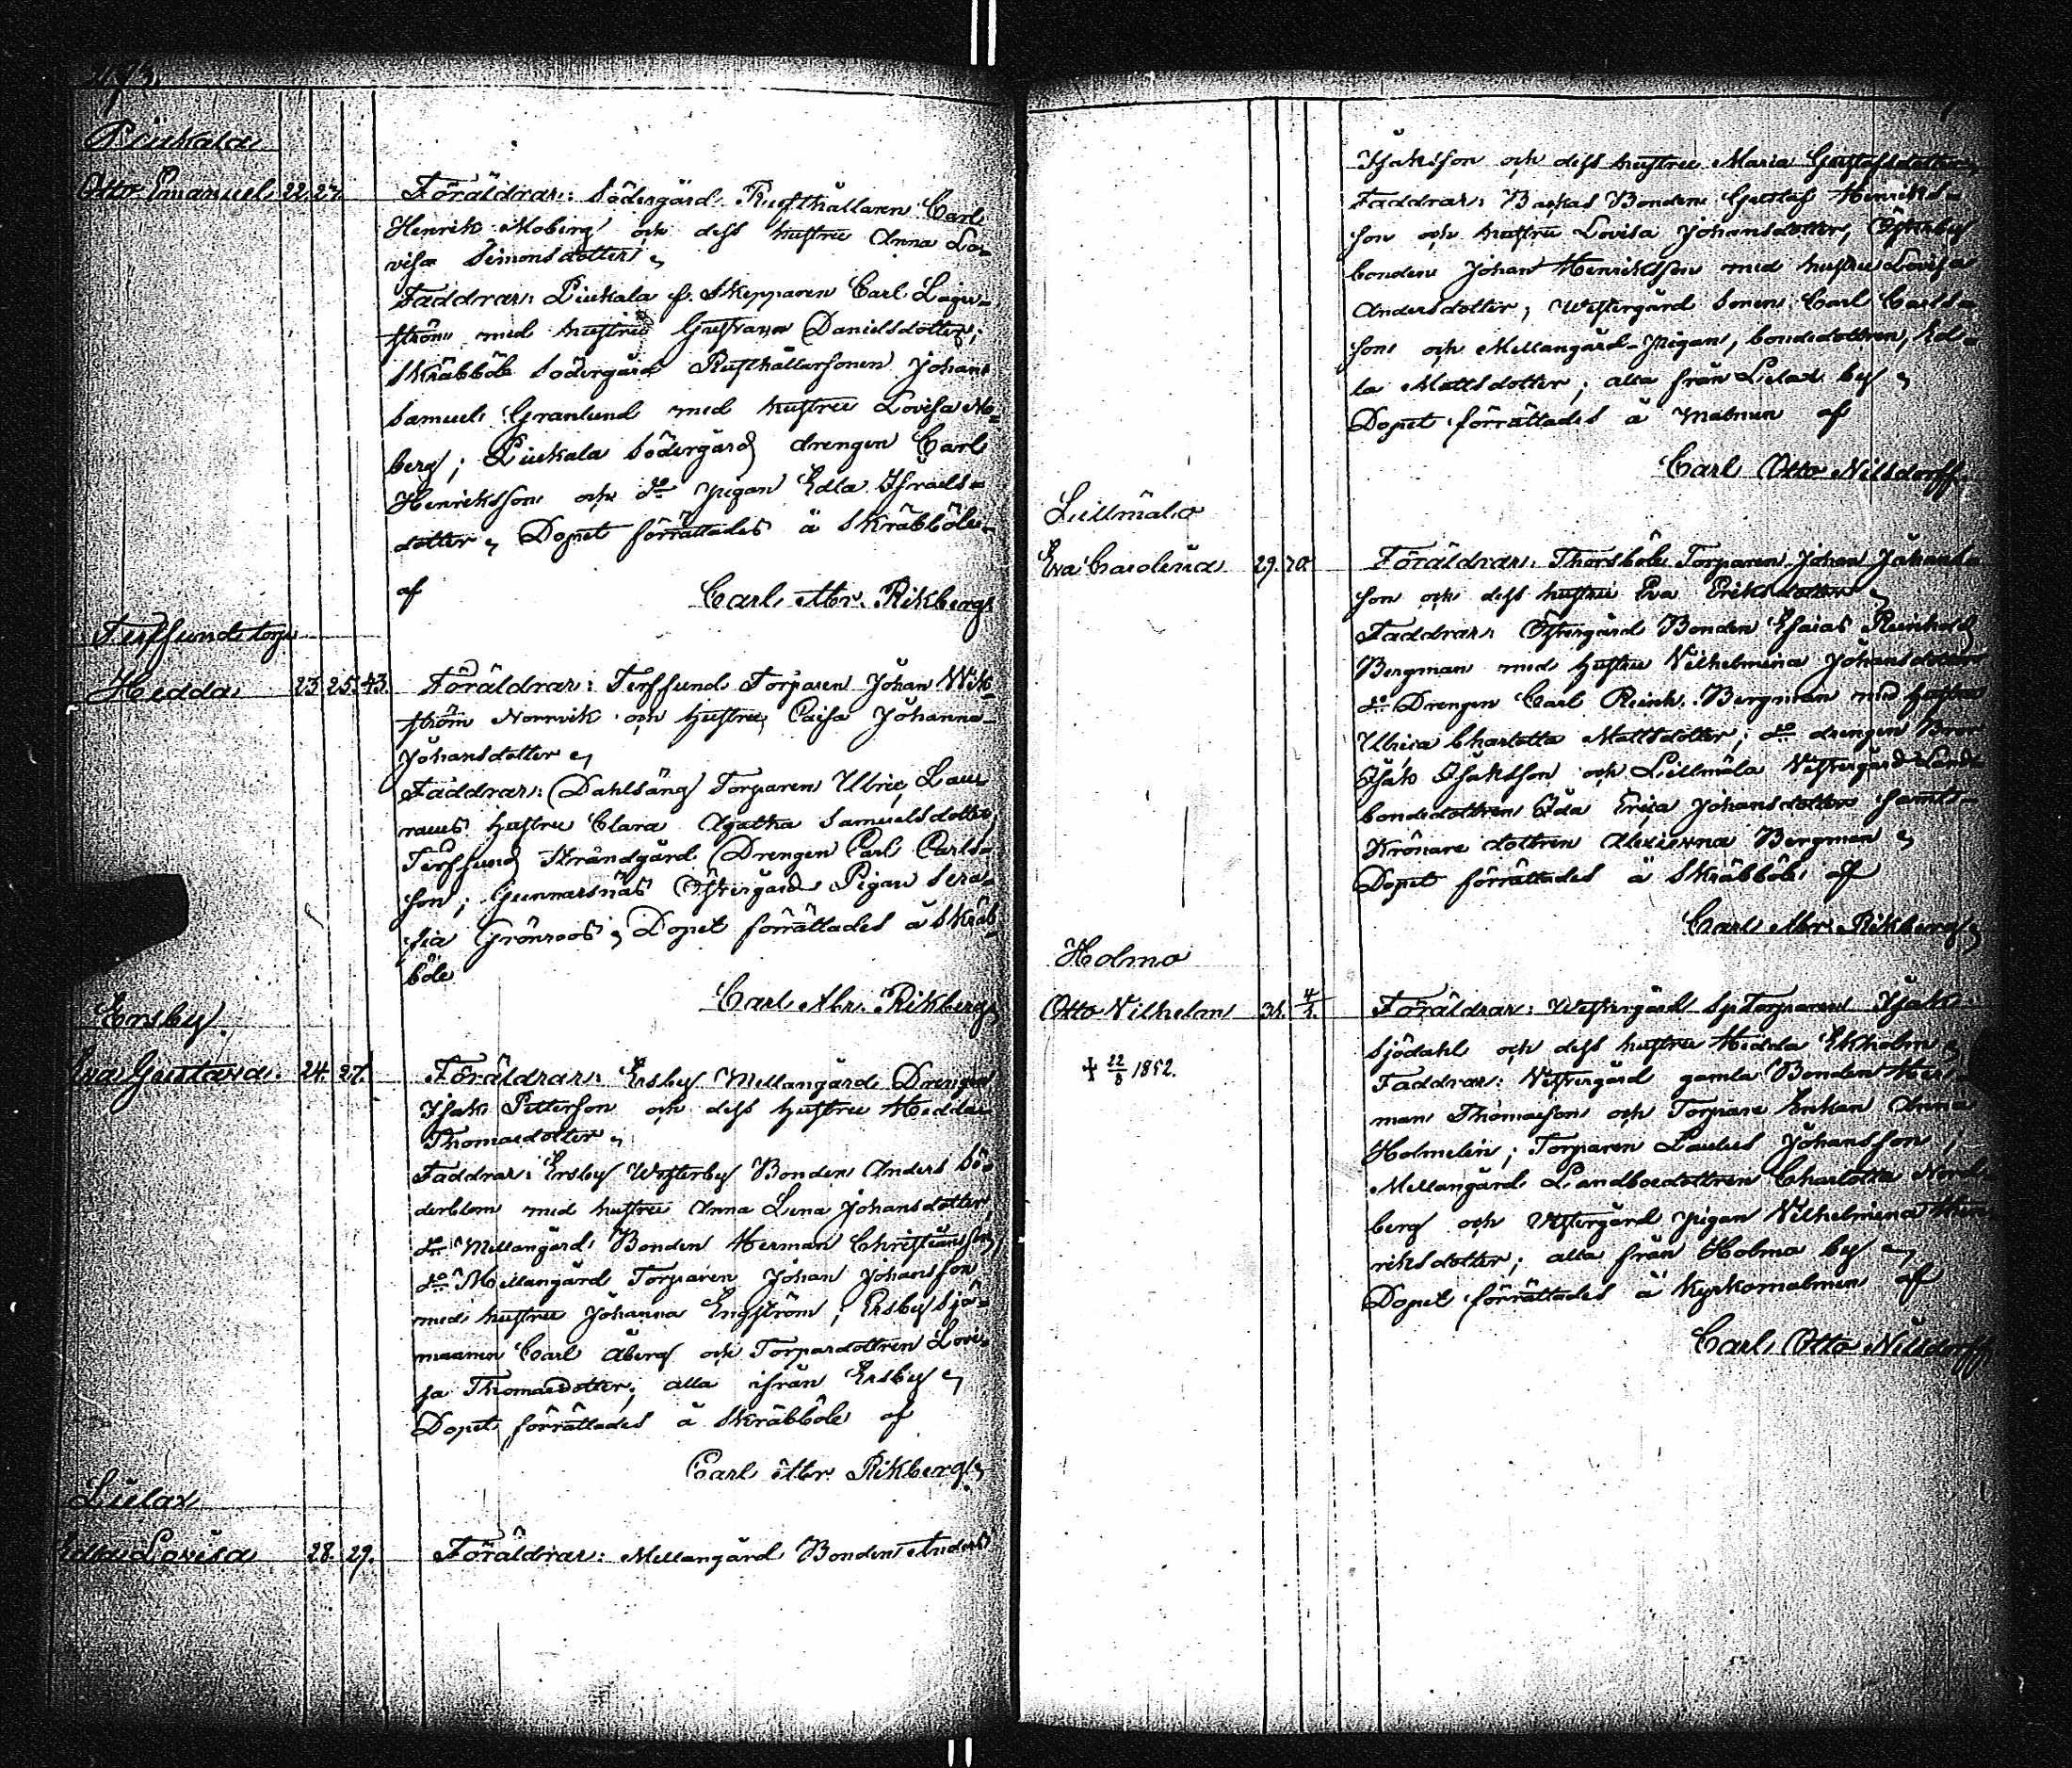 Piukala
Otto Emanuel 22. 27. Föräldrar: Södergård Rusthållaren Carl
Henrik Moberg och dess hustru Anna Lo-
visa Simonsdotter,
Faddrar: Piukala f. Skepparen Carl Lager-
ström med hustru Gustava Danielsdotter;
Skräbböle Södergård Rusthållarsonen Johan
Samuel Granlund med hustru Lovisa Mo-
berg; Piukala Södergård drengen Carl
Henriksson och do pigan Edla Israels-
dotter, Dopet förrättades å Skräbböle
af Carl Abr. Rikberg
Terfsund torp
Hedda 23. 25. 43. Föräldrar: Terfsund Torparen Johan Wik-
ström Norrvik och hustru Caisa Johanna
Johansdotter,
Faddrar: Dahlsäng Torparen Ulric Lau-
raeus hustru Clara Agatha Samuelsdotter,
Terfsund Strandgård Drengen Carl Carls-
son; Gunnarsnäs Östergård Pigan Sera-
fia Grönroos, Dopet förrättades å Skräb-
böle
Carl Abr. Rikberg
Ersby.
Eva Gustava. 24. 27. Föräldrar: Ersby Mellangård Drengen
Isak Petterson och dess hustru Hedda
Thomasdotter,
Faddrar: Ersby Westerby Bonden Anders Sö-
derblom med hustru Anna Lena Johansdotter,
do Mellangård Bonden Herman Christiansson,
do Mellangård Torparen Johan Johansson
med hustru Johanna Engström; Ersby Sjö-
mannen Carl Åberg och Torpardottren Lovi-
sa Thomasdotter; alla ifrån Ersby,
Dopet förrättades å Skräbböle af
Carl Abr. Rikberg
Lielax
Edla Lovisa 28. 29. Föräldrar: Mellangård Bonden Anders
Isaksson och dess hustru Maria Gustafsdotter,
Faddrar: Backas Bonden Gustaf Henriks-
son och hustru Lovisa Johansdotter, Österby
bonden Johan Henriksson med hustru Lovisa
Andersdotter; Westergård Sonen Carl Carls-
son och Mellangård Pigan, bondedottren, Ed-
la Mattsdotter; alla från Lielax by,
Dopet förrättades å malmen af
Carl Otto Nilsdorff.
Lillmälo
Eva Carolina 29. Föräldrar: Thorsböle Torparen Johan Johans-
son och dess hustru Eva Eriksdotter,
Faddrar: Östergård Bonden Esaias Reinhold
Bergman med hustru Vilhelmina Johansdotter
do Drengen Carl Reinh. Bergman med hustru
Ulrica Charlotta Mattsdotter; do drengen
Isak Isaksson och Lillmälo Vestergård Land-
bondedottren Ida Erica Johansdotter samt
Krönare dottren Bergman,
Dopet förrättades å Skräbböle af
Carl Abr. Rikberg
Holmo
Otto Vilhelm 31. 4/1. Föräldrar: Westergård Sp. Torparen Isak
Sjödahl och dess hustru Hedda Ekholm,
+ 22/8 1852.
Faddrar: Vestergård gamla Bonden Her-
man Thomasson och Torpare Enkan Anna
Holmelin; Torparen Paulus Johansson;
Mellangård Landboedottren Charlotta Nord-
berg och Vestergård pigan Vilhelmina Hen-
riksdotter; alla från Holma by,
Dopet förrättades å Kyrkomalmen af
Carl Otto Nilsdorff